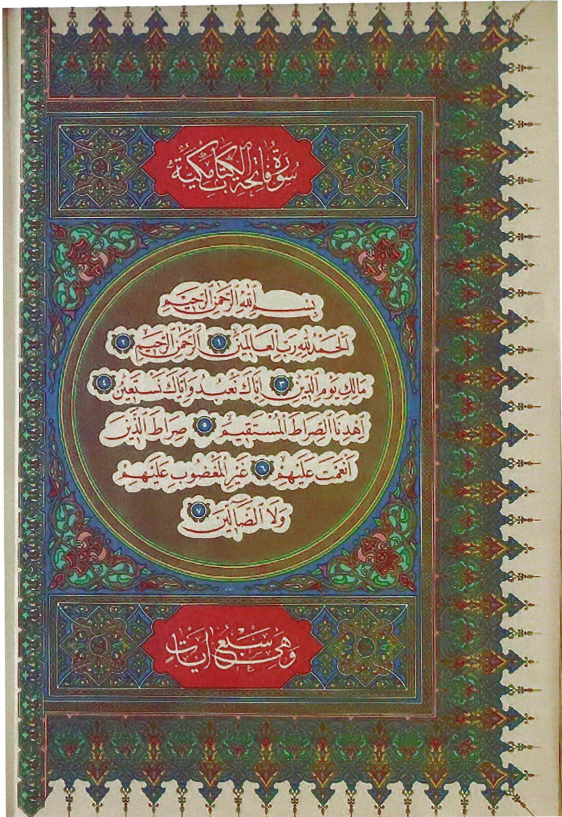 سُورَةُ فَاتِحَةِ الكِتَابِ مَكِّيَّة
بِسْمِ اللهِ الرَّحْمٰنِ الرَّحِيمِ
اَلْحَمْدُ لِلّٰهِ رَبِّ الْعَالَمِينَ ١ اَلرَّحْمٰنِ الرَّحِيمِ ٢
مَالِكِ يَوْمِ الدِّينِ ٣ اِيَّاكَ نَعْبُدُ وَاِيَّاكَ نَسْتَعِينُ ٤
اِهْدِنَا الصِّرَاطَ الْمُسْتَقِيمَ ٥ صِرَاطَ الَّذِينَ
اَنْعَمْتَ عَلَيْهِمْ ٦ غَيْرِ الْمَغْضُوبِ عَلَيْهِمْ
وَلَا الضَّالِّينَ ٧
وَهِيَ سَبْعُ اٰيَاتٍ